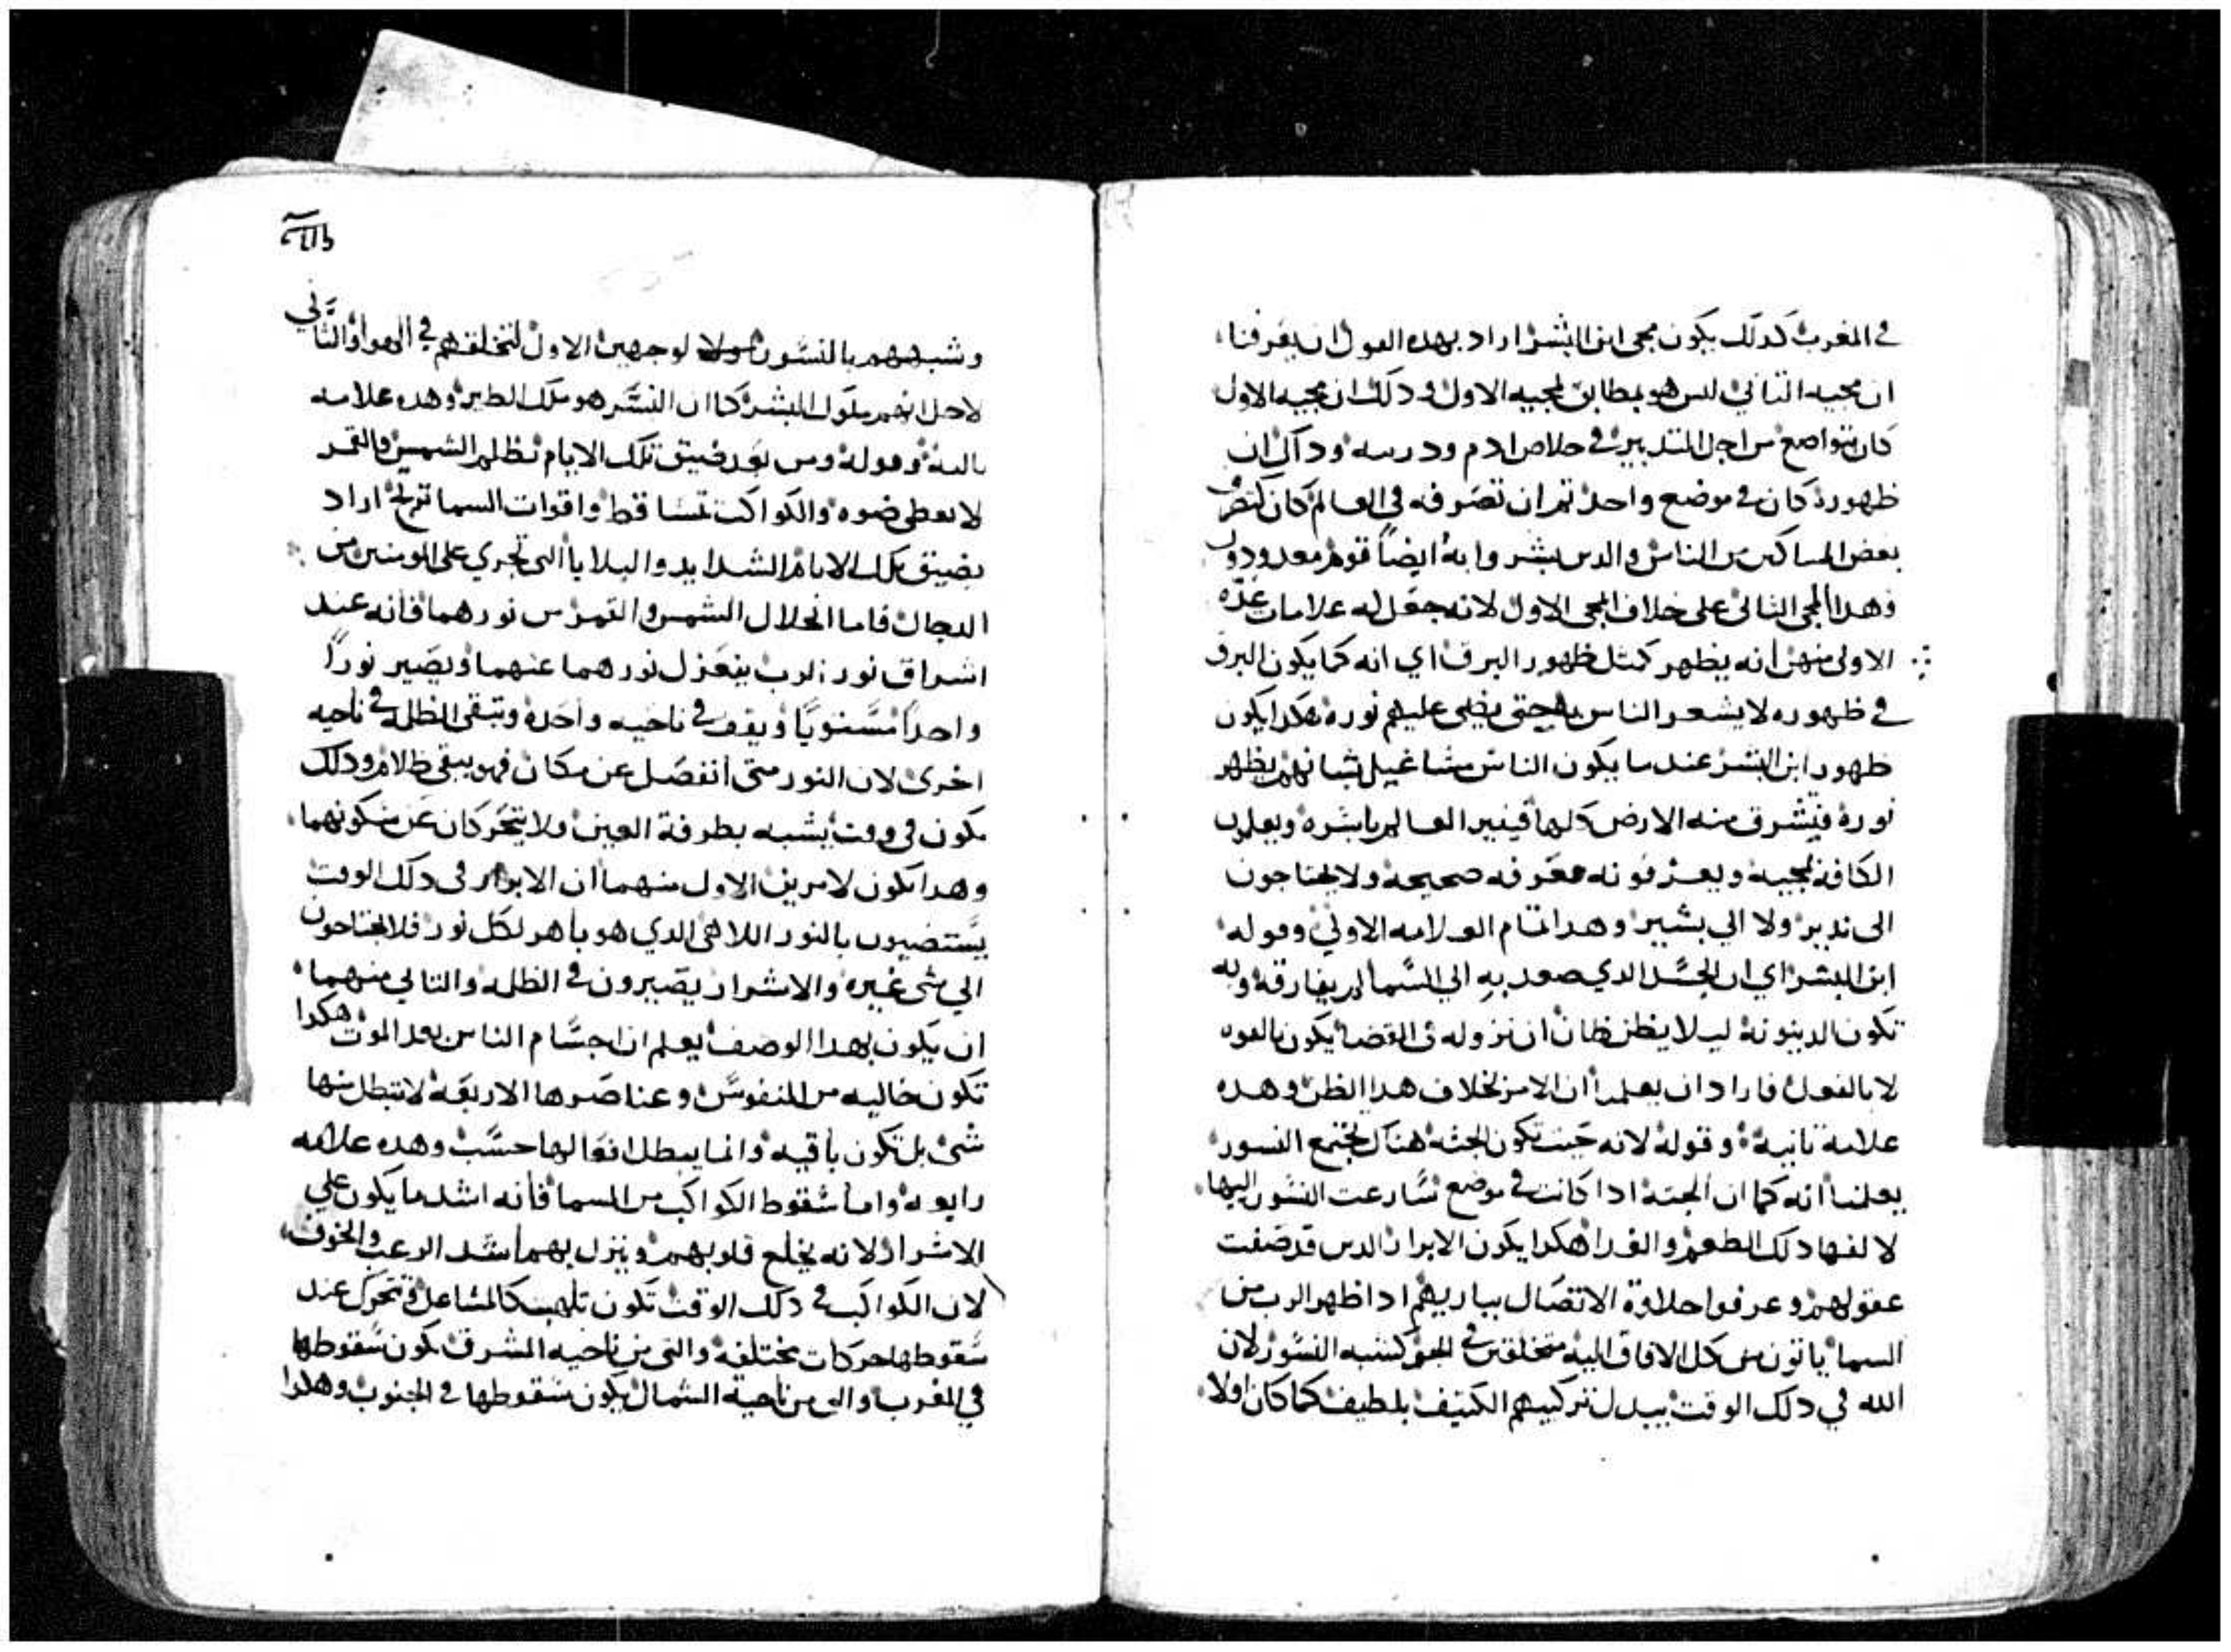 في المغرب كدلك يكون مجى ابن البشر اراد بهده القول ان يعرفنا
ان مجيه التاني ليس هو بمطابق لمجيه الاول ودلك ان مجيه الاول
كان بتواضع من اجل التدبير في خلاص ادم ودريته وداك ان
ظهوره كان في موضع واحد تم ان تصرفه في العالم كان كتصرف
بعض المساكين من الناس والدين بشروا به ايضاً قوم معدودون
وهدا المجى التاني على خلاف المجى الاول لانه جعل له علامات عدّه
الاولى منهن انه يظهر كمتل ظهور البرق اي انه كما يكون البرق
في ظهوره لا يشعر الناس به حتى يضى عليهم نوره هكدا يكون
ظهور ابن البشر عند ما يكون الناس مشاغيل بشانهم يظهر
نوره فيشرق منه الارض كلها فينير العالم باشره ويعلمون
الكافة بمجيه ويعرفونه معرفه صحيحه ولا يحتاجون
الى ندير ولا الي بشير وهدا تمام العلامه الاولي وقوله
ابن البشر اي ان الجسد الدي صعد به الي السما لم يفارقه وبه
تكون الدينونة ليلا يظن ظان ان نزوله في القضا يكون بالقوه
لا بالفعل فاراد ان يعلمنا ان الامر بخلاف هدا الظن وهده
علامة تانية وقوله لانه حيت تكون الجته هناك تجتمع النسور
يعلمنا انه كما ان الجته ادا كانت في موضع سارعت النسور اليها
لالفها دلك الطعم والغدا هكدا يكون الابرار الدين قد صفت
عقولهم وعرفوا حلاوة الاتصال بباريهم ادا ظهر الرب من
السما ياتون من كل الافاق اليه متحلقين في الجو كشبه النسور لان
الله في دلك الوقت يبدل تركيبهم الكتيف بلطيف كما كان اولا
وشبههم بالنسور لوجهين الاول لتحلقهم في الهوا والتاني
لاجل انهم ملوك البشر كما ان النسر هو ملك الطير وهده علامه
تالته وقوله ومن بعد ضيق تلك الايام تظلم الشمس والقمر
لا يعطي ضوه والكواكب تتساقط واقوات السما ترتج اراد
بضيق تلك الايام الشدايد والبلايا التي تجري على المومنين من
الدجال فاما انحلال الشمس والقمر من نورهما فانه عند
اشراق نور الرب ينعزل نورهما عنهما ويصير نوراً
واحداً مستوياً ويقف في ناحيه واحده وتبقى الظله في ناحيه
اخرى لان النور متى انفصل عن مكان فهو يبقى ظلام ودلك
يكون في وقت يشبه بطرفة العين ولا يتحركان عن سكونهما
وهدا يكون لامرين الاول منهما ان الابرار في دلك الوقت
يستضيون بالنور اللاهى الدي هو باهر لكل نور فلا يحتاجون
الي شى غيره والاشرار يصيرون في الظله والتاني منهما
ان يكون بهدا الوصف يعلم ان اجسام الناس بعد الموت هكدا
تكون خاليه من النفوس وعناصرها الاربعة لا تبطل منها
شى بل تكون باقيه وانما يبطل افعالها حسب وهده علامه
رابعه واما سقوط الكواكب من السما فانه اشد ما يكون علي
الاشرار لانه يخلع قلوبهم وينزل بهم اشد الرعب والخوف
لان الكواكب في دلك الوقت تكون تلهب كالمشاعل وتتحرك عند
سقوطها حركات مختلفه والتى من ناحيه المشرق يكون سقوطها
في المغرب والتى من ناحية الشمال يكون سقوطها في الجنوب وهكدا